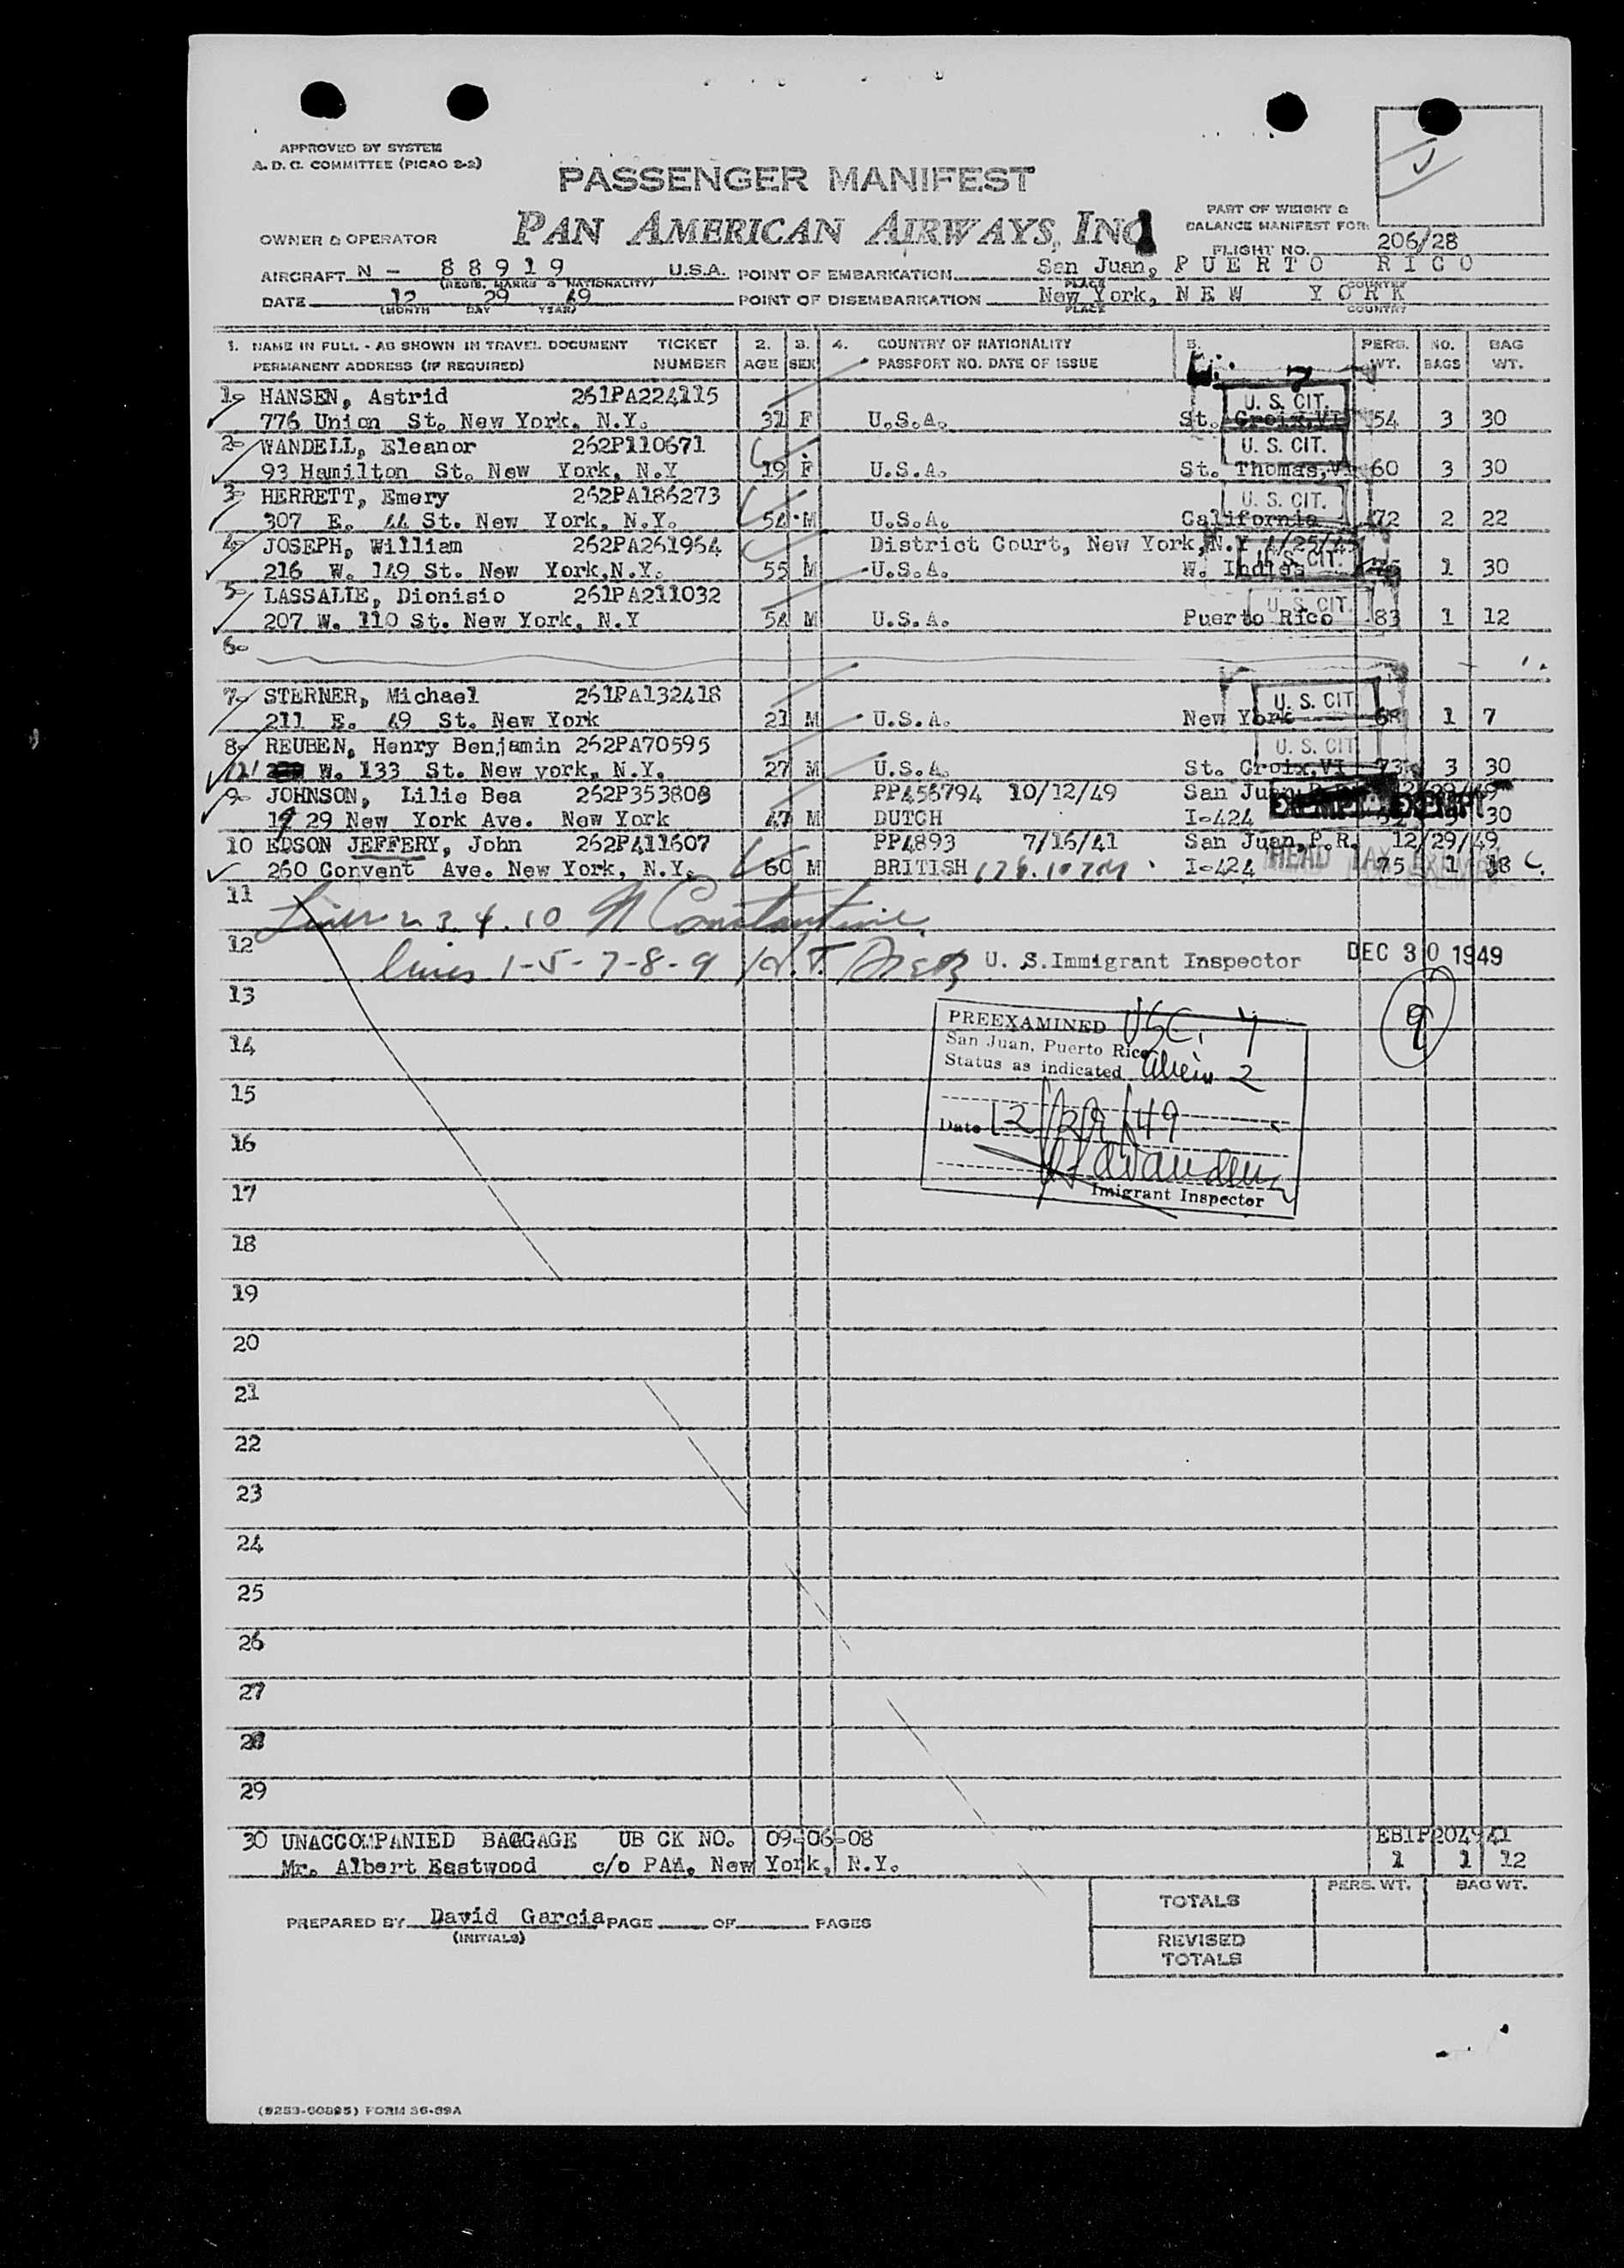 APPROVED BY SYSTEM
A. D. C. COMMITTEE (PICAO 2-2)
PASSENGER MANIFEST
PAN AMERICAN AIRWAYS, INC
PART OF WEIGHT &
BALANCE MANIFEST FOR:
OWNER & OPERATOR
FLIGHT NO. 206/28
AIRCRAFT N - 88919 U.S.A. POINT OF EMBARKATION San Juan, PUERTO RICO
(REGIS. MARKS & NATIONALITY) PLACE COUNTRY
DATE 12 29 49 POINT OF DISEMBARKATION New York, NEW YORK
(MONTH DAY YEAR) PLACE COUNTRY
1. NAME IN FULL - AS SHOWN IN TRAVEL DOCUMENT TICKET 2. 3. 4. COUNTRY OF NATIONALITY 5. PERS. NO. BAG
PERMANENT ADDRESS (IF REQUIRED) NUMBER AGE SEX PASSPORT NO. DATE OF ISSUE WT. BAGS WT.
7
1- HANSEN, Astrid 261PA224115 U. S. CIT.
776 Union St. New York, N.Y. 31 F U.S.A. St. Croix,VI 54 3 30
2- WANDELL, Eleanor 262P110671 U. S. CIT.
93 Hamilton St. New York, N.Y 19 F U.S.A. St. Thomas,V 60 3 30
3- HERRETT, Emery 262PA186273 U. S. CIT.
307 E. 44 St. New York, N.Y. 54 M U.S.A. California 72 2 22
4- JOSEPH, William 262PA261964 District Court, New York, N.Y
216 W. 149 St. New York,N.Y. 55 M U.S.A. W. Indies U. S. CIT. 1 30
5- LASSALIE, Dionisio 261PA211032 U. S. CIT.
207 W. 110 St. New York, N.Y 54 M U.S.A. Puerto Rico 83 1 12
6-
7- STERNER, Michael 261PA132418 U. S. CIT
211 E. 49 St. New York 21 M U.S.A. New York 68 1 7
8- REUBEN, Henry Benjamin 262PA70595 U. S. CIT
W. 133 St. New york, N.Y. 27 M U.S.A. St. Croix,VI 73 3 30
9- JOHNSON, Lilie Bea 262P353808 PP456794 10/12/49 San Juan 12/29/49
19 29 New York Ave. New York 47 M DUTCH I-424 30
10 EDSON JEFFERY, John 262P411607 PP4893 7/16/41 San Juan,P.R. 12/29/49
260 Convent Ave. New York, N.Y. 60 M BRITISH I-424 HEAD TAX EXEMPT 75 1 18
11 Lines 2 3. 4. 10 Constantine
12 lines 1-5-7-8-9 U. S.Immigrant Inspector DEC 30 1949
13
9
PREEXAMINED USC. 7
14 San Juan, Puerto Rico
Status as indicated Alien 2
15
Date 12/29/49
16
17
Imigrant Inspector
18
19
20
21
22
23
24
25
26
27
28
29
30 UNACCOMPANIED BAGGAGE UB CK NO. 09-06-08 EB1P204941
Mr. Albert Eastwood c/o PAA, New York, N.Y. 1 1 12
TOTALS PERS. WT. BAG WT.
PREPARED BY David Garcia PAGE OF PAGES
(INITIALS)
REVISED
TOTALS
(9253-60895) FORM 36-89A